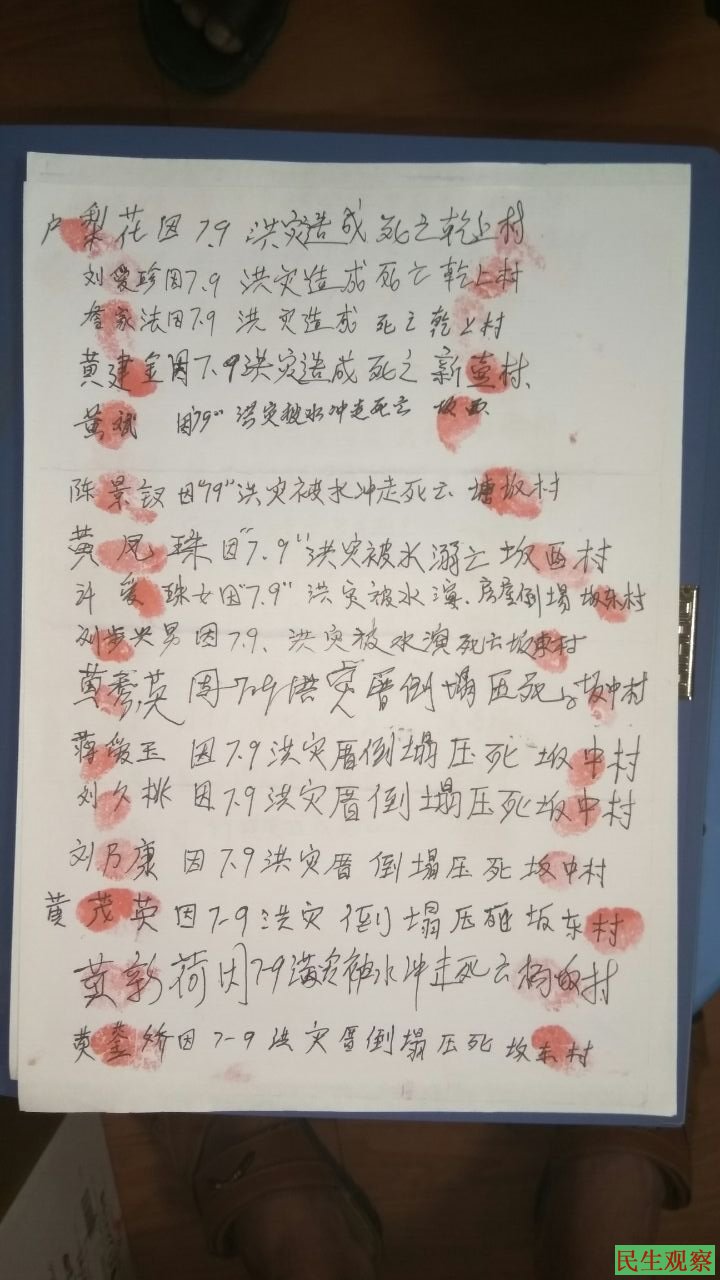 卢梨花因7.9洪灾造成死亡乾上村
刘爱珍因7.9洪灾造成死亡乾上村
詹家法因7.9洪灾造成死亡乾上村
黄建金因7.9洪灾造成死亡新壶村、
黄斌 因"79"洪灾被水冲走死亡 坂西
陈景钗因"79"洪灾被水冲走死亡塘坂村
黄凤珠因"7.9"洪灾被水溺亡坂西村
许爱珠女因"7.9"洪灾被水淹、房屋倒塌坂东村
刘步 男因7.9、洪灾被水淹死亡坂东村
黄秀英因7.9洪灾厝倒塌压死 坂中村
蒋爱玉因7.9洪灾厝倒塌压死坂中村
刘久桃因7.9洪灾厝倒塌压死坂中村
刘乃康因7.9洪灾厝倒塌压死坂中村
黄茂英因7-9洪灾倒塌压 坂东村
黄新荷因7-9 灾被水冲走死亡 坂村
黄 娇因7-9洪灾厝倒塌压死坂东村
民生观察